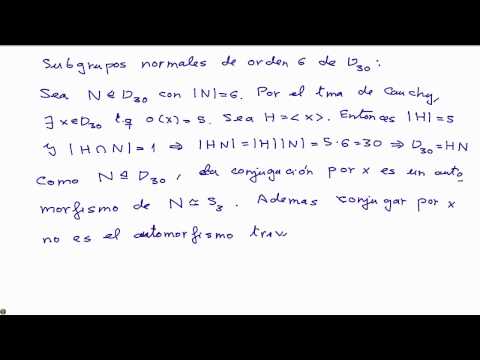 Subgrupos normales de orden 6 de D₃₀:
Sea N ⊴ D₃₀ con |N|=6. Por el tma de Cauchy,
∃ x∈D₃₀ t.q. o(x)=5. Sea H=<x>. Entonces |H|=5
y |H∩N|=1 ⇒ |HN|=|H||N|=5·6=30 ⇒ D₃₀=HN
Como N ⊴ D₃₀, la conjugación por x es un auto
morfismo de N ≃ S₃. Ademas conjugar por x
no es el automorfismo triv